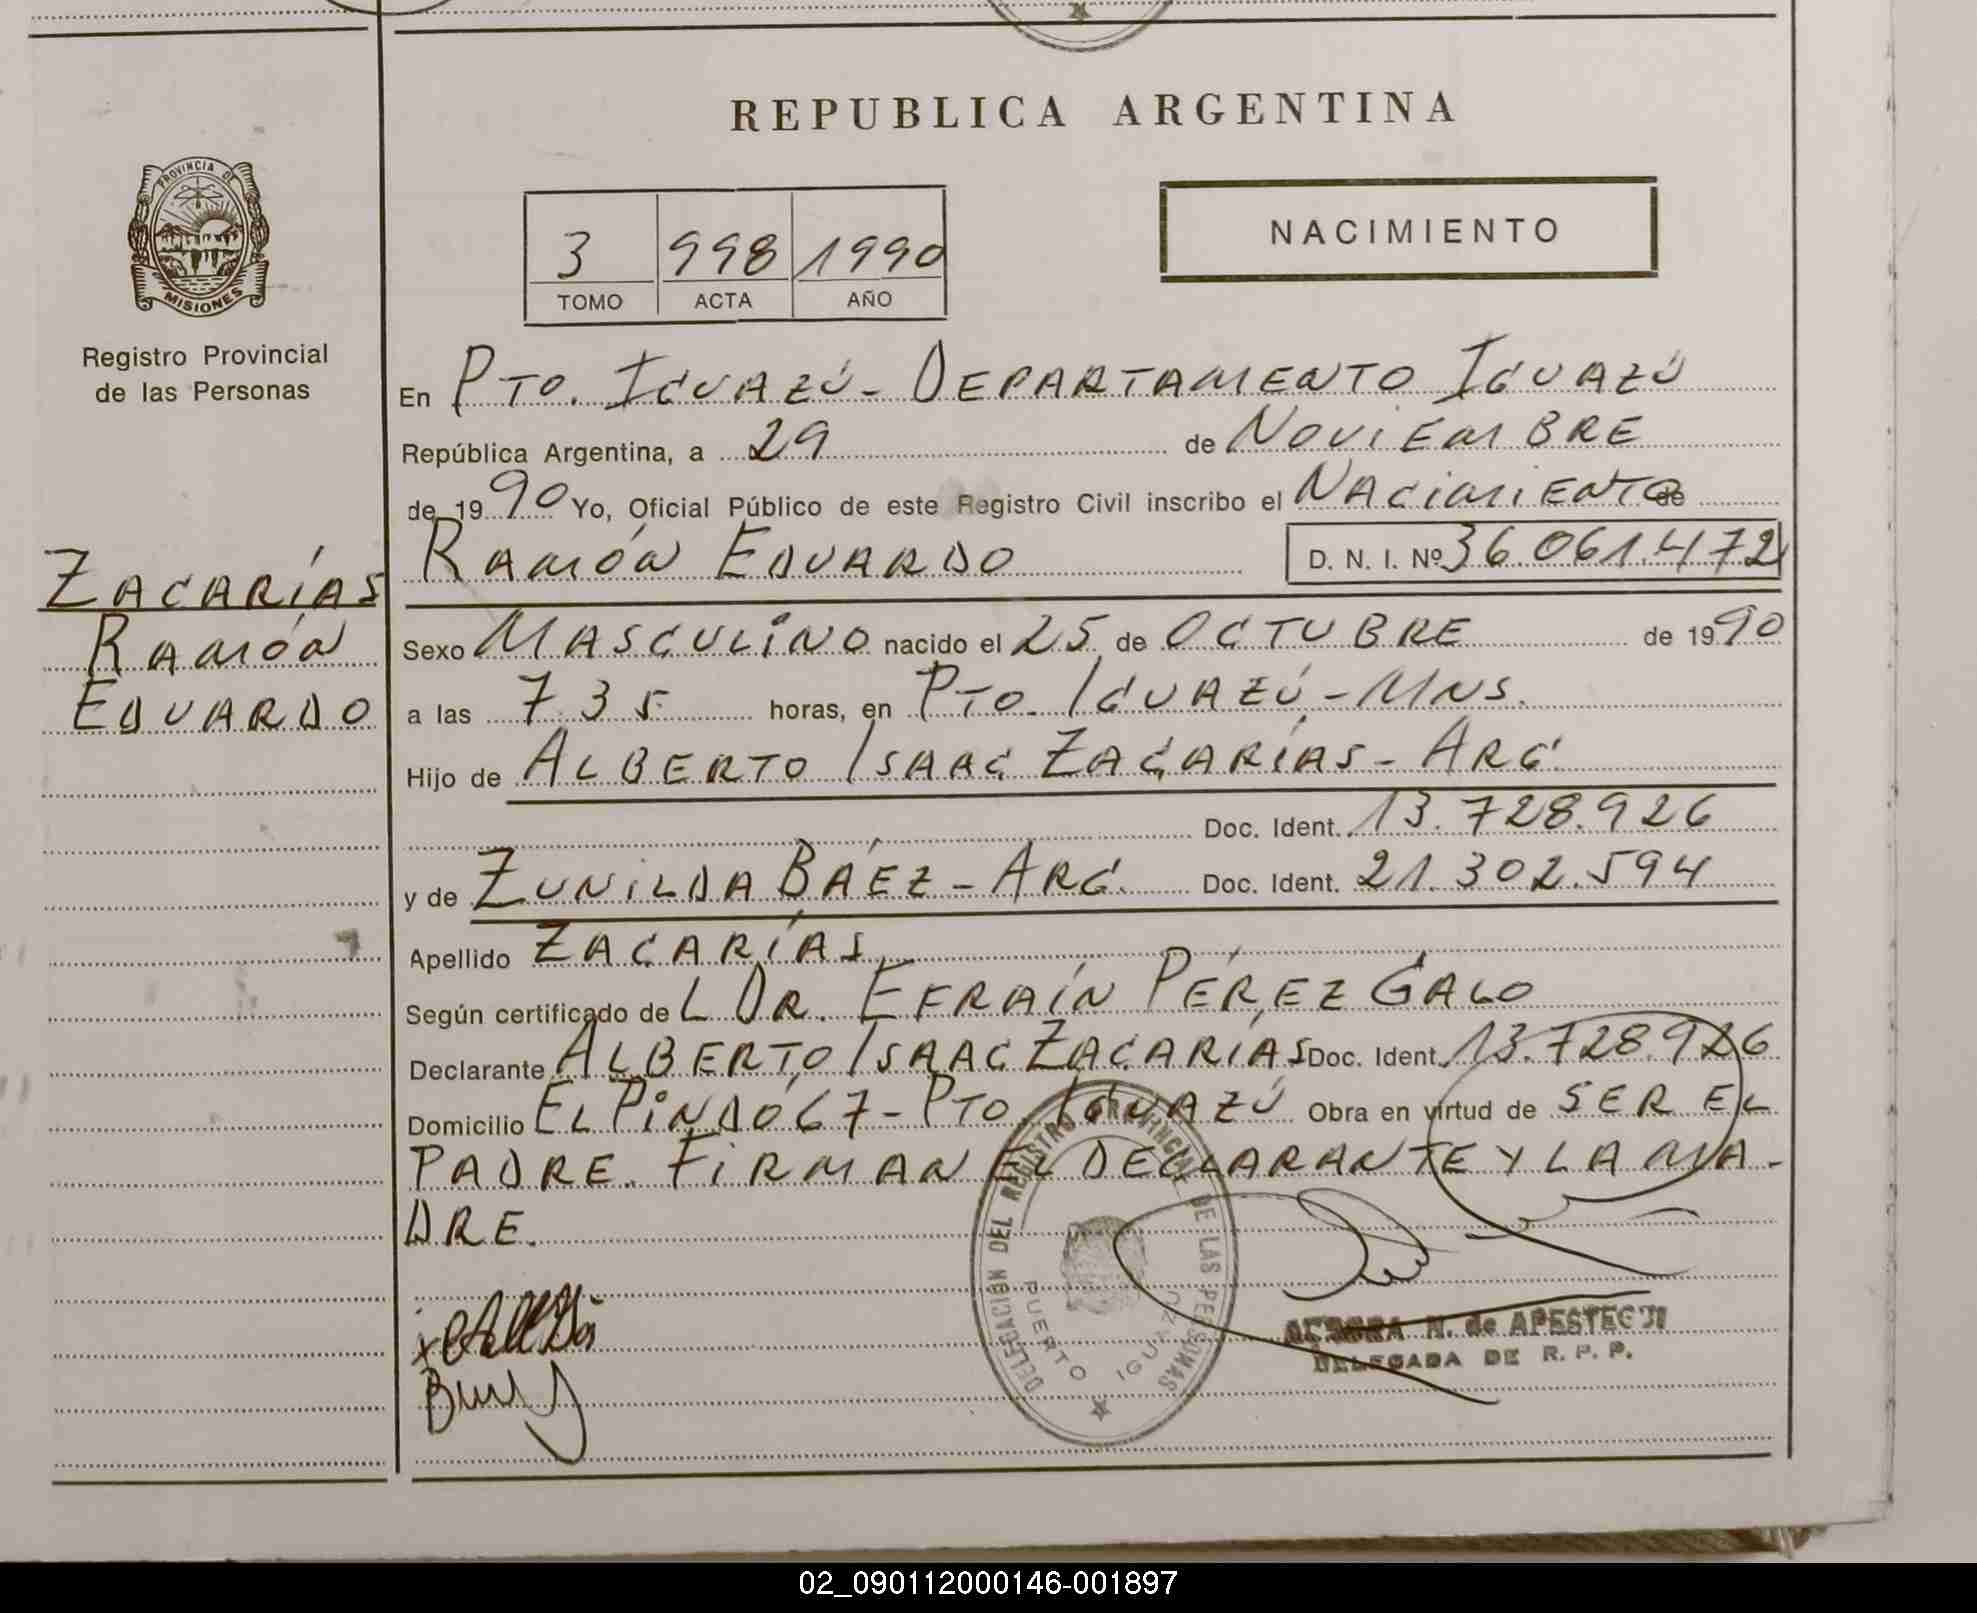 REPUBLICA ARGENTINA
PROVINCIA DE
MISIONES
Registro Provincial
de las Personas
ZACARÍAS
RAMÓN
EDUARDO
3 998 1990
TOMO ACTA AÑO
NACIMIENTO
En PTO. IGUAZÚ - DEPARTAMENTO IGUAZÚ
República Argentina, a 29 de NOVIEMBRE
de 1990 Yo, Oficial Público de este Registro Civil inscribo el NACIMIENTO de
RAMÓN EDUARDO D. N. I. Nº 36.061.472
Sexo MASCULINO nacido el 25 de OCTUBRE de 1990
a las 7 35 horas, en PTO. IGUAZÚ - MNS.
Hijo de ALBERTO ISAAC ZACARÍAS - ARG.
Doc. Ident. 13.728.926
y de ZUNILDA BÁEZ - ARG. Doc. Ident. 21.302.594
Apellido ZACARÍAS
Según certificado de L DR. EFRAÍN PÉREZ GALO
Declarante ALBERTO ISAAC ZACARÍAS Doc. Ident. 13.728.926
Domicilio EL PINDÓ 67 - PTO. IGUAZÚ Obra en virtud de SER EL
PADRE. FIRMAN EL DECLARANTE Y LA MA-
DRE.
DELEGACIÓN DEL REGISTRO PROVINCIAL DE LAS PERSONAS
PUERTO IGUAZU
N. de APESTEGUI
DELEGADA DE R. P. P.
02_090112000146-001897